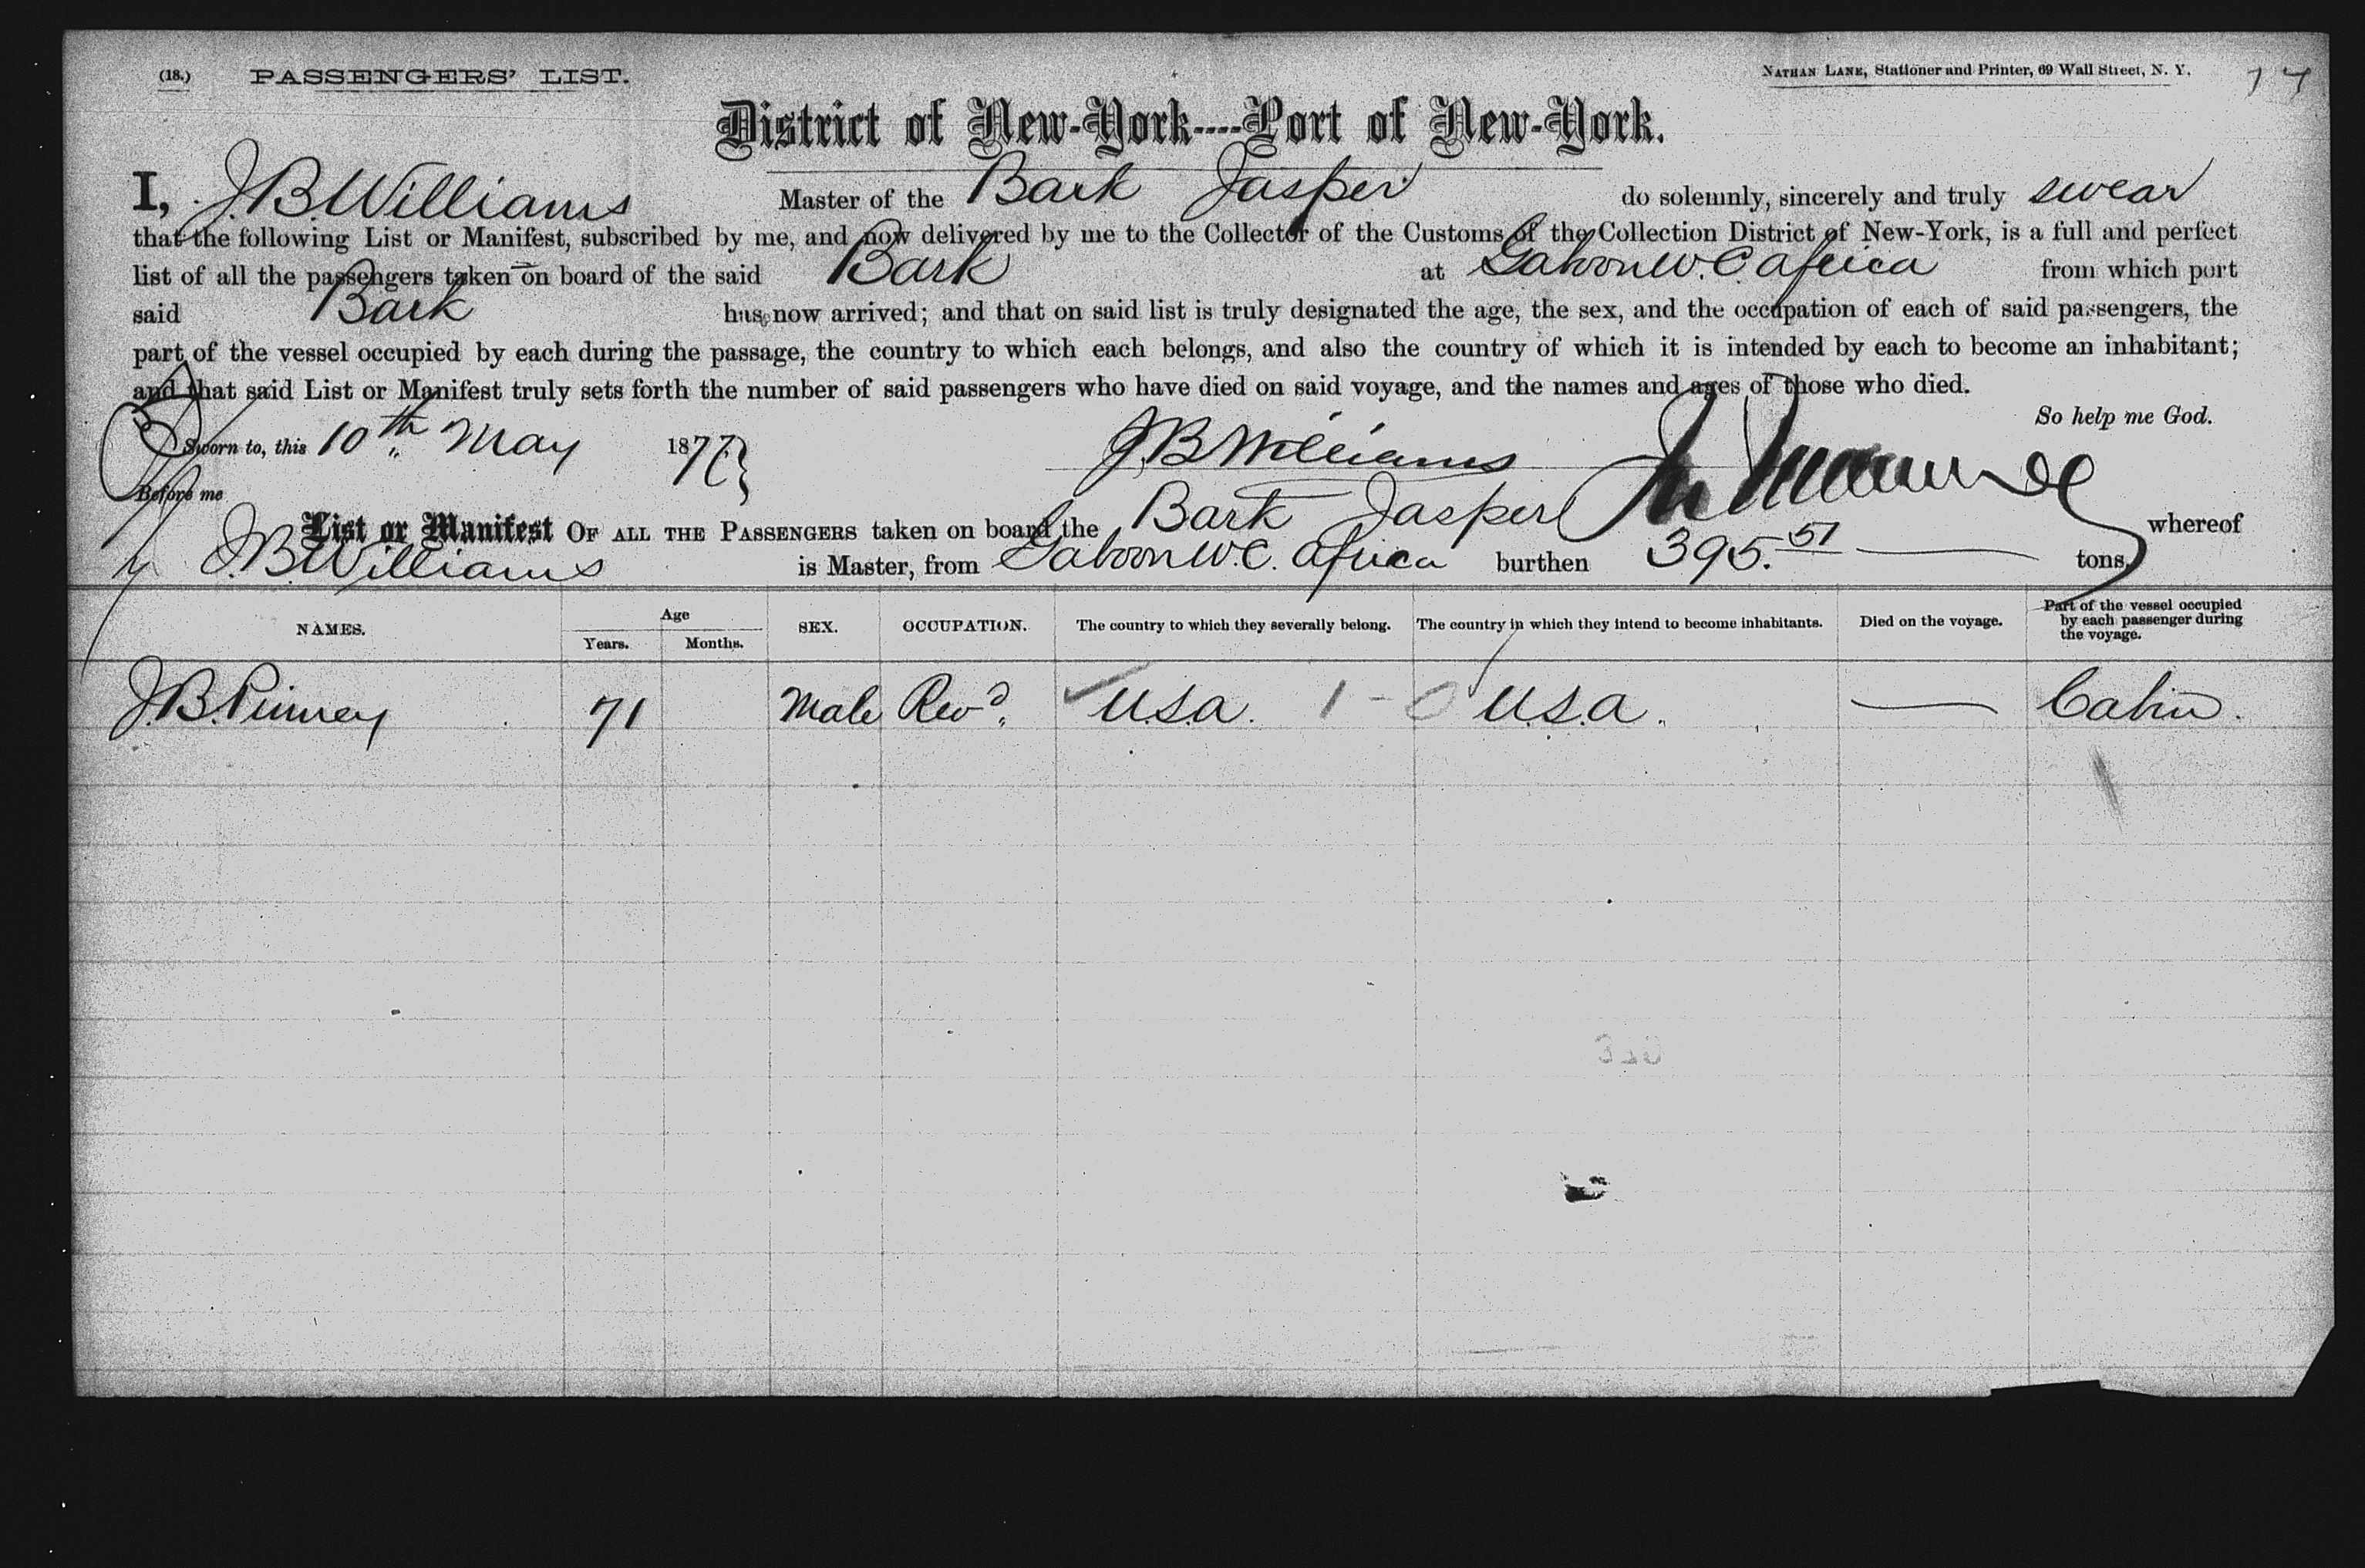 (18.) PASSENGERS' LIST. NATHAN LANE, Stationer and Printer, 69 Wall Street, N. Y.
District of New-York----Port of New-York.
I, J.B. Williams Master of the Bark Jasper do solemnly, sincerely and truly swear
that the following List or Manifest, subscribed by me, and now delivered by me to the Collector of the Customs of the Collection District of New-York, is a full and perfect
list of all the passengers taken on board of the said Bark at Gaboon W. C. Africa from which port
said Bark has now arrived; and that on said list is truly designated the age, the sex, and the occupation of each of said passengers, the
part of the vessel occupied by each during the passage, the country to which each belongs, and also the country of which it is intended by each to become an inhabitant;
and that said List or Manifest truly sets forth the number of said passengers who have died on said voyage, and the names and ages of those who died.
So help me God.
Sworn to, this 10th May 1877 J B Williams
Before me
List or Manifest OF ALL THE PASSENGERS taken on board the Bark Jasper whereof
J.B. Williams is Master, from Gaboon W. C. Africa burthen 395.51 tons.
NAMES. Age Years. Months. SEX. OCCUPATION. The country to which they severally belong. The country in which they intend to become inhabitants. Died on the voyage. Part of the vessel occupied by each passenger during the voyage.
J.B. Pinney 71 Male Revd. U.S.A. 1 - 0 U.S.A. — Cabin.